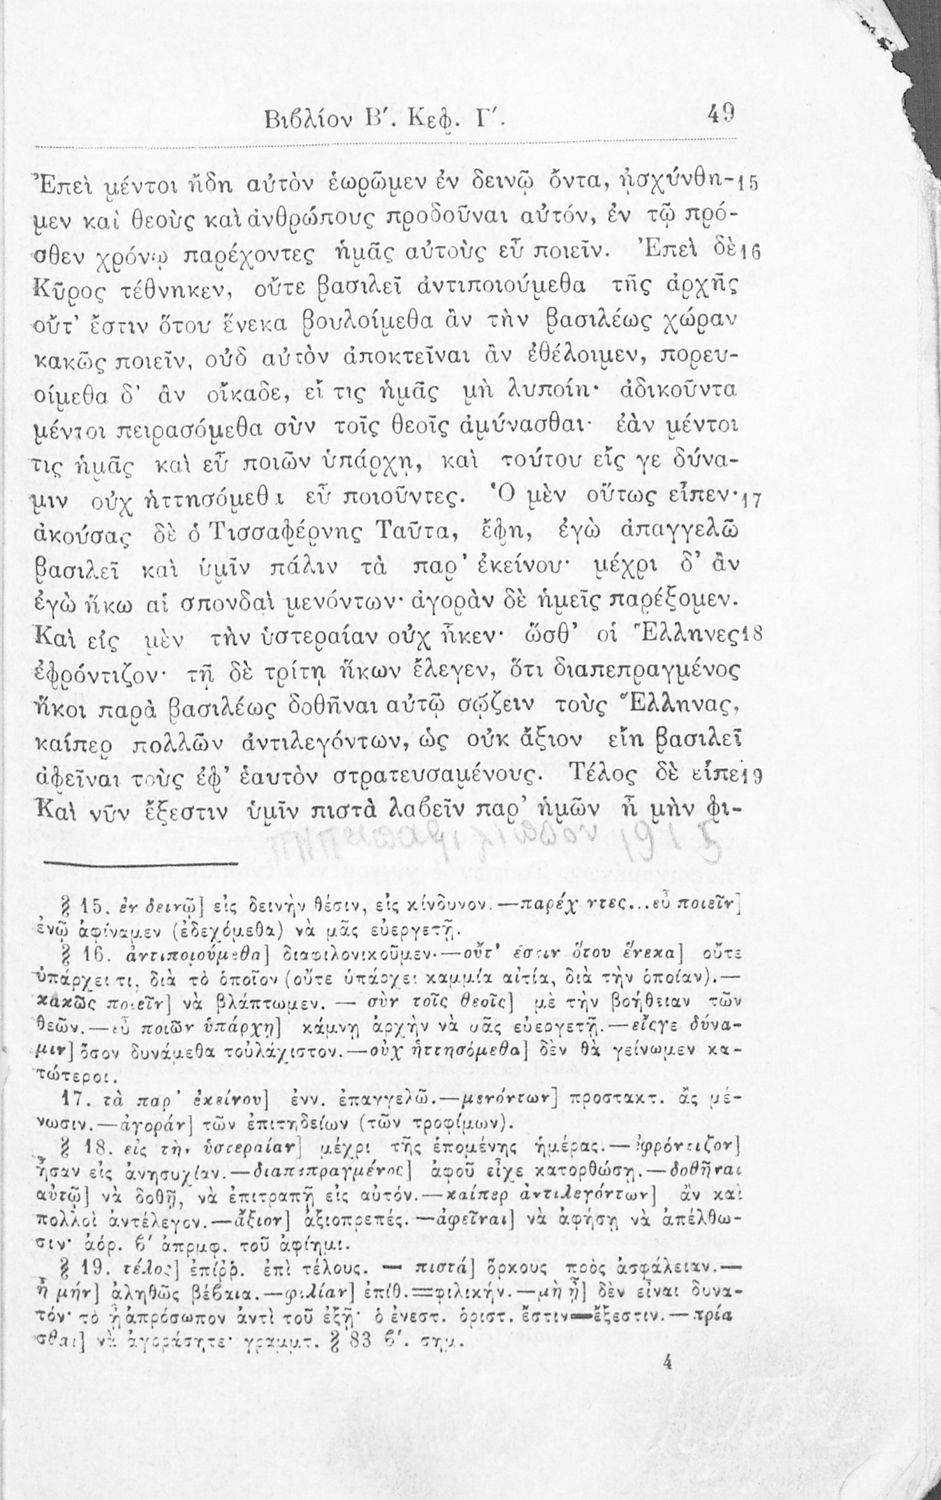 Βιβλίον Β΄. Κεφ. Γ΄. 49
Ἐπεὶ μέντοι ἤδη αὐτὸν ἑωρῶμεν ἐν δεινῷ ὄντα, ᾐσχύνθη- 15
μεν καὶ θεοὺς καὶ ἀνθρώπους προδοῦναι αὐτόν, ἐν τῷ πρό-
σθεν χρόνῳ παρέχοντες ἡμᾶς αὐτοὺς εὖ ποιεῖν. Ἐπεὶ δὲ 16
Κῦρος τέθνηκεν, οὔτε βασιλεῖ ἀντιποιούμεθα τῆς ἀρχῆς
οὔτ' ἔστιν ὅτου ἕνεκα βουλοίμεθα ἂν τὴν βασιλέως χώραν
κακῶς ποιεῖν, οὐδ αὐτὸν ἀποκτεῖναι ἂν ἐθέλοιμεν, πορευ-
οίμεθα δ' ἂν οἴκαδε, εἴ τις ἡμᾶς μὴ λυποίη· ἀδικοῦντα
μέντοι πειρασόμεθα σὺν τοῖς θεοῖς ἀμύνασθαι· ἐὰν μέντοι
τις ἡμᾶς καὶ εὖ ποιῶν ὑπάρχῃ, καὶ τούτου εἴς γε δύνα-
μιν οὐχ ἡττησόμεθα εὖ ποιοῦντες. Ὁ μὲν οὕτως εἶπεν· 17
ἀκούσας δὲ ὁ Τισσαφέρνης Ταῦτα, ἔφη, ἐγὼ ἀπαγγελῶ
βασιλεῖ καὶ ὑμῖν πάλιν τὰ παρ' ἐκείνου· μέχρι δ' ἂν
ἐγὼ ἥκω αἱ σπονδαὶ μενόντων· ἀγορὰν δὲ ἡμεῖς παρέξομεν.
Καὶ εἰς μὲν τὴν ὑστεραίαν οὐχ ἧκεν· ὥσθ' οἱ Ἕλληνες 18
ἐφρόντιζον· τῇ δὲ τρίτῃ ἥκων ἔλεγεν, ὅτι διαπεπραγμένος
ἥκοι παρὰ βασιλέως δοθῆναι αὐτῷ σῴζειν τοὺς Ἕλληνας,
καίπερ πολλῶν ἀντιλεγόντων, ὡς οὐκ ἄξιον εἴη βασιλεῖ
ἀφεῖναι τοὺς ἐφ' ἑαυτὸν στρατευσαμένους. Τέλος δὲ εἶπε 19
Καὶ νῦν ἔξεστιν ὑμῖν πιστὰ λαβεῖν παρ' ἡμῶν ἦ μὴν φι-
§ 15. ἐν δεινῷ] εἰς δεινὴν θέσιν, εἰς κίνδυνον.—παρέχ ντες...εὖ ποιεῖν]
ἐνῷ ἀφίναμεν (ἐδεχόμεθα) νὰ μᾶς εὐεργετῇ.
§ 16. ἀντιποιούμεθα] διαφιλονικοῦμεν·—οὔτ' ἔστιν ὅτου ἕνεκα] οὔτε
ὑπάρχει τι, διὰ τὸ ὁποῖον (οὔτε ὑπάρχει καμμία αἰτία, διὰ τὴν ὁποίαν).—
κακῶς ποιεῖν] νὰ βλάπτωμεν. — σὺν τοῖς θεοῖς] μὲ τὴν βοήθειαν τῶν
θεῶν.—εὖ ποιῶν ὑπάρχῃ] κάμνῃ ἀρχὴν νὰ μᾶς εὐεργετῇ.—εἴςγε δύνα-
μιν] ὅσον δυνάμεθα τοὐλάχιστον.—οὐχ ἡττησόμεθα] δὲν θὰ γείνωμεν κα-
τώτεροι.
17. τὰ παρ' ἐκείνου] ἐνν. ἐπαγγελῶ.—μενόντων] προστακτ. ἂς μέ-
νωσιν.—ἀγοράν] τῶν ἐπιτηδείων (τῶν τροφίμων).
§ 18. εἰς τὴν ὑστεραίαν] μέχρι τῆς ἑπομένης ἡμέρας.—ἐφρόντιζον]
ἦσαν εἰς ἀνησυχίαν.—διαπεπραγμένος] ἀφοῦ εἶχε κατορθώσῃ.—δοθῆναι
αὐτῷ] νὰ δοθῇ, νὰ ἐπιτραπῇ εἰς αὐτόν.—καίπερ ἀντιλεγόντων] ἂν καὶ
πολλοὶ ἀντέλεγον.—ἄξιον] ἀξιοπρεπές.—ἀφεῖναι] νὰ ἀφήσῃ νὰ ἀπέλθω-
σιν· ἀόρ. β' ἀπρμφ. τοῦ ἀφίημι.
§ 19. τέλος] ἐπίῤῥ. ἐπὶ τέλους. — πιστά] ὅρκους πρὸς ἀσφάλειαν.—
ἦ μήν] ἀληθῶς βέβαια.—φιλίαν] ἐπίθ.=φιλικήν.—μὴ ᾖ] δὲν εἶναι δυνα-
τόν· τὸ ᾖ ἀπρόσωπον ἀντὶ τοῦ ἐξῇ· ὁ ἐνεστ. ὁριστ. ἔστιν=ἔξεστιν.—πρία
σθαι] νὰ ἀγοράσητε· γραμμτ. § 83 β'. σημ.
4